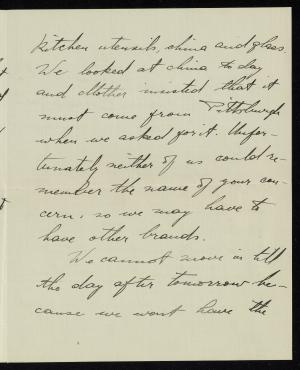 kitchen utensils, china and glass.
We looked at china to day
and Mother insisted that it
must come from Pittsburgh
when we asked for it. Unfor-
tunately neither of us could re-
member the name of your con-
cern, so we may have to
have other brands.
We cannot move in till
the day after tomorrow be-
cause we wont have the